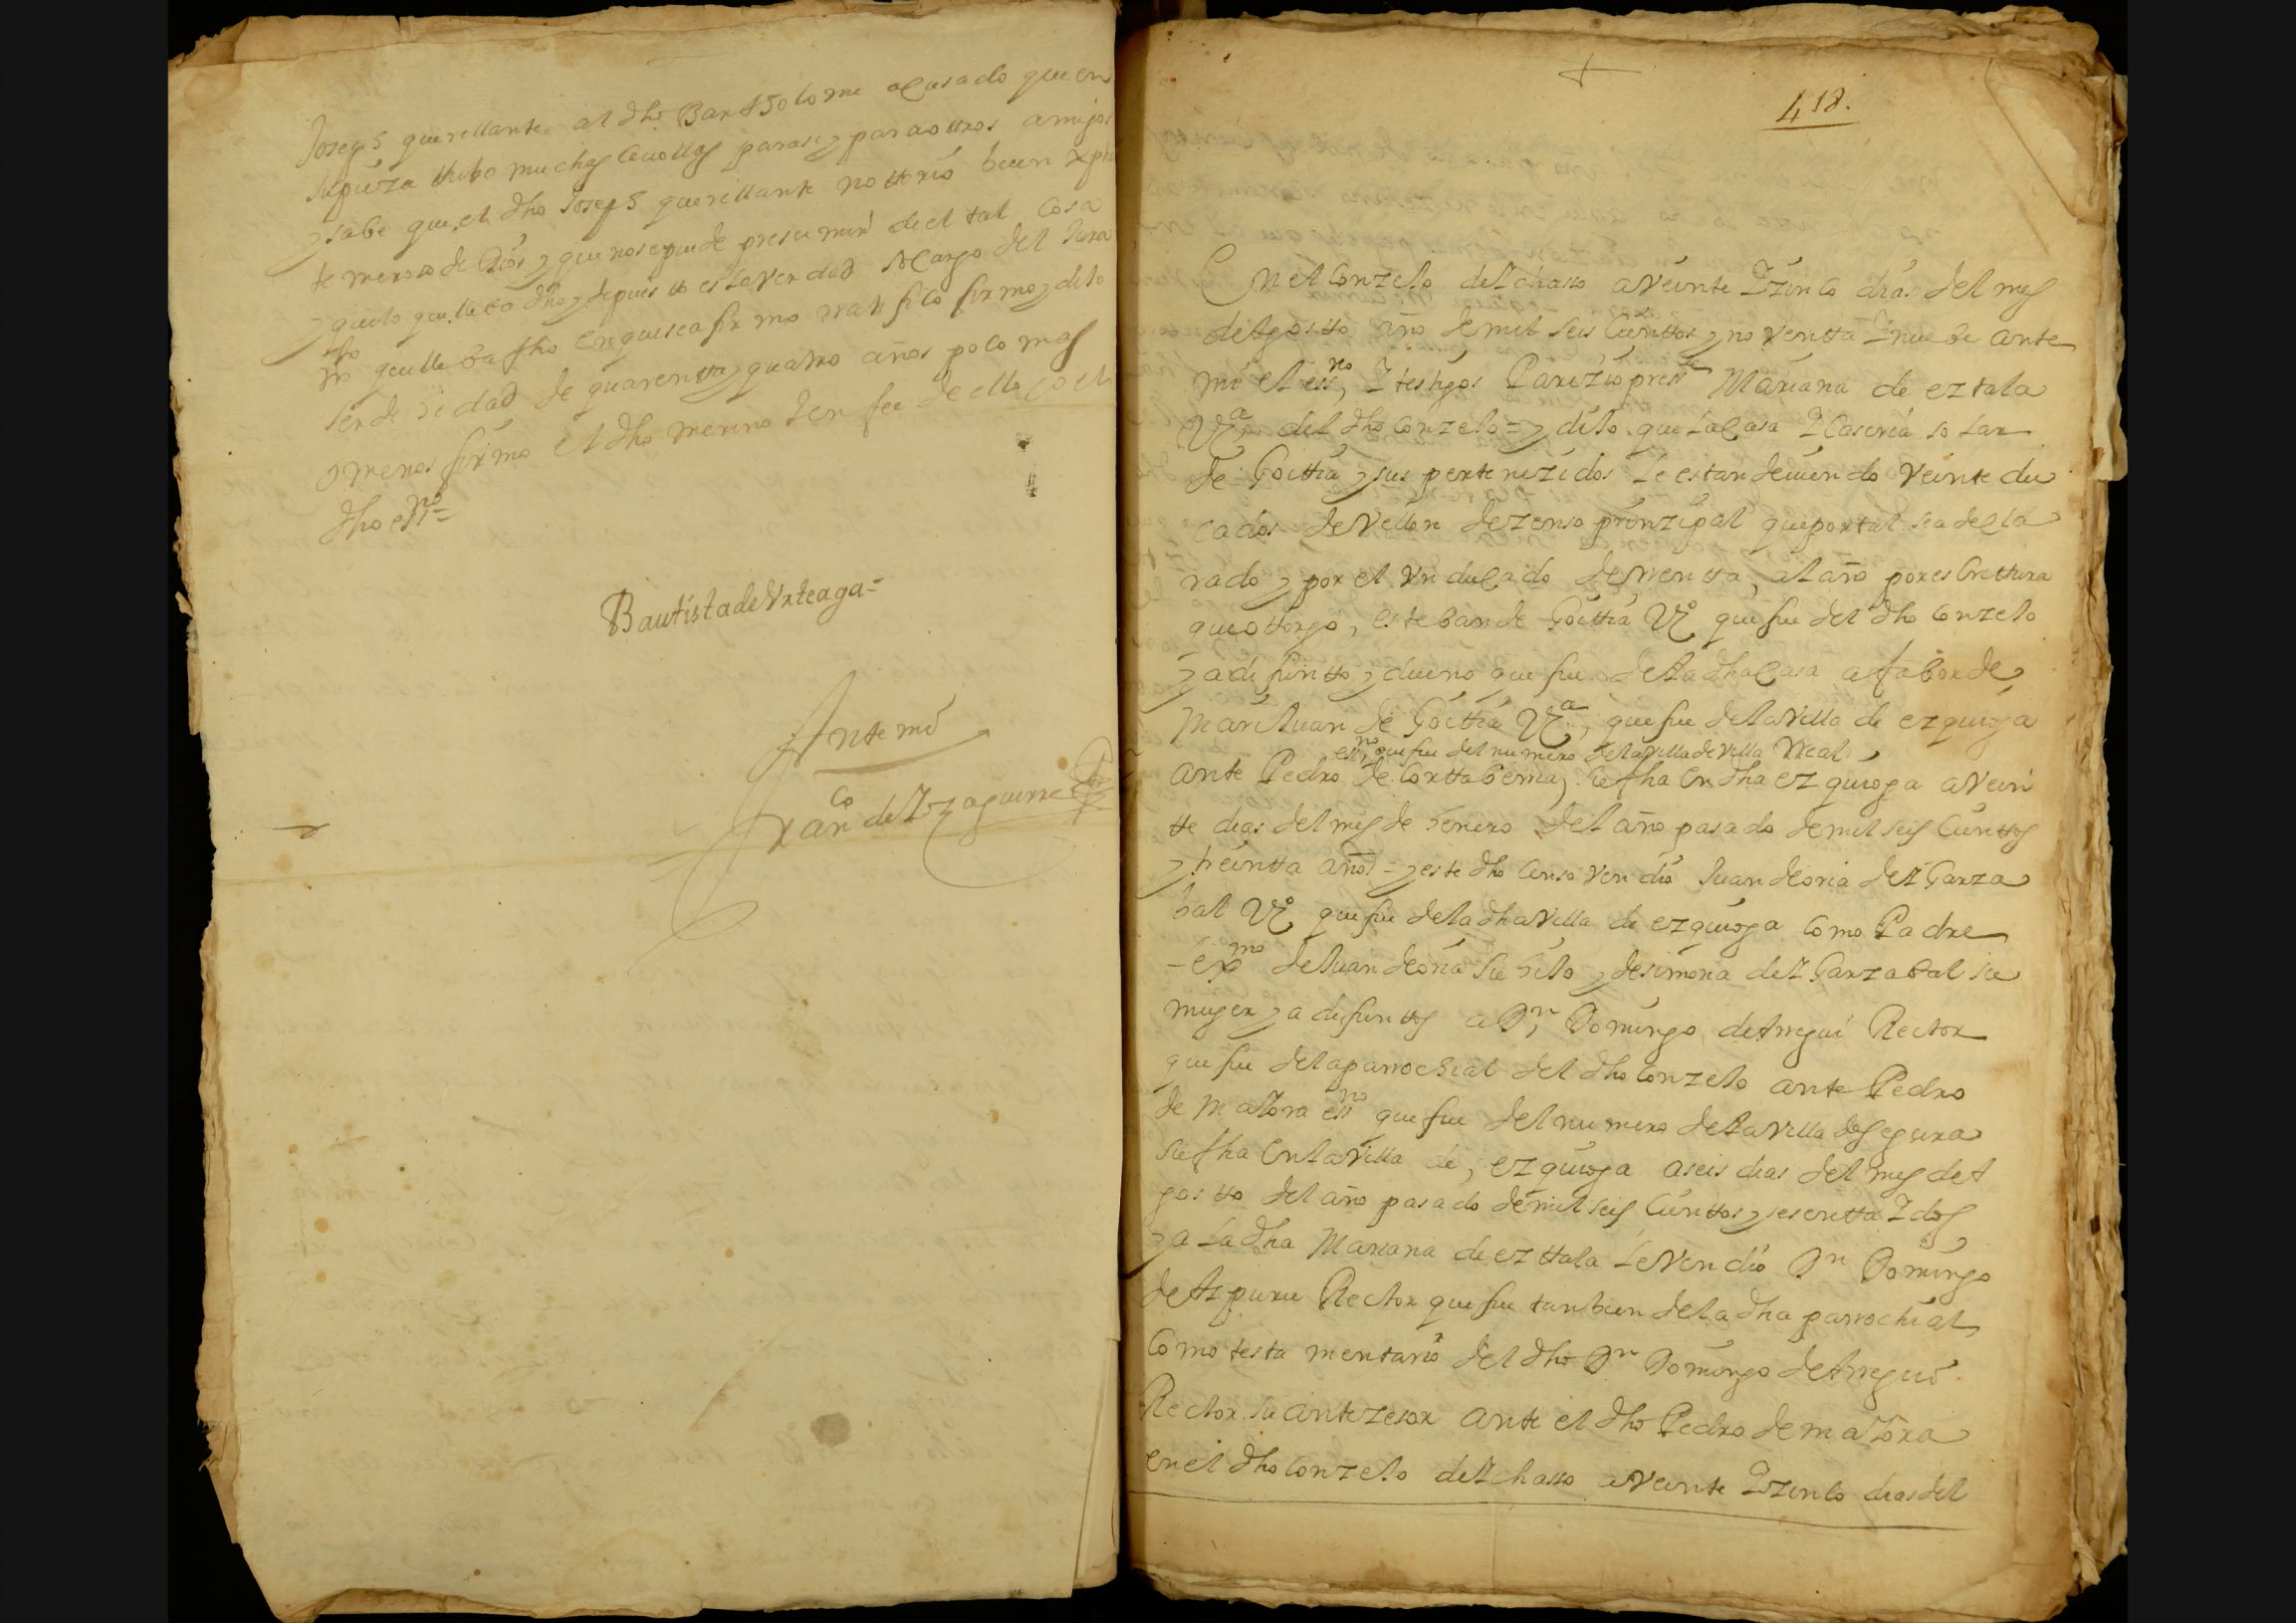 Joseph querellante al dho Bartholome acusado que en
su pieza thubo muchas cevollas parasi y para ottros amigos
y sabe que el dho Joseph querellante nottorio buen xptiano
temeroso de Dios y que no se puede presumir de el tal cosa
y questo que lleba dho y depuesto es la verdad so cargo del Jura
mto que lleba fho en que se afirmo rattifico firmo y dijo
ser de hedad de quarentta y quatro años poco mas
o menos firmo el dho merino y en fee de ello yo el
dho essno=
Bautista de Urteaga=
Ante mi
Franco de Yzaguirre
418.
En el conzejo de Ychasso a veinte y zinco dias del mes
de Agostto año de mil seis cienttos y noventta y nuebe ante
mi el essno y testigos Parezio presste Mariana de eztala
Vza del dho conzejo = y dijo que la casa y caseria solar
de Goittia y sus pertenezidos le estan deviendo veinte du
cados de vellon de zenso prinzipal que por tal sea decla
rado y por el un ducado de rrentta al año por escrittura
que ottorgo, esteban de Goittia Vzo que fue del dho conzejo
ya difuntto y dueño que fue de la dha casa a fabor de
Mari Juan de Goittia Vza, que fue de la Villa de ezquioga
essno que fue del numero de la villa de villa Rreal
ante Pedro de Corttaberria, su fha en dha ezquioga a vein
tte dias del mes de henero del año pasado de mil seis cienttos
y treintta años = y este dho censo vendio Juan de oria de YGarza
bal Vzo que fue de la dha Villa de ezquioga como Padre
lexmo de Juan de oria su hijo y de simona de YGarzabal su
muger ya difunttos a Dn Domingo de Arregui Rector
que fue de la parrochial del dho conzejo ante Pedro
de Maiora essno que fue del numero de la villa de segura
su fha en la Villa de ezquioga a seis dias del mes de A
gostto del año pasado de mil seis cienttos y sesentta y dos
y a la dha Mariana de ezttala le vendio Dn Domingo
de Aspuru Rector que fue tanbien de la dha parrochial
como testamentario del dho Dn Domingo de Arregui
Rector su antezesor ante el dho Pedro de maiora
en el dho conzejo de Ychasso a veinte y zinco dias del